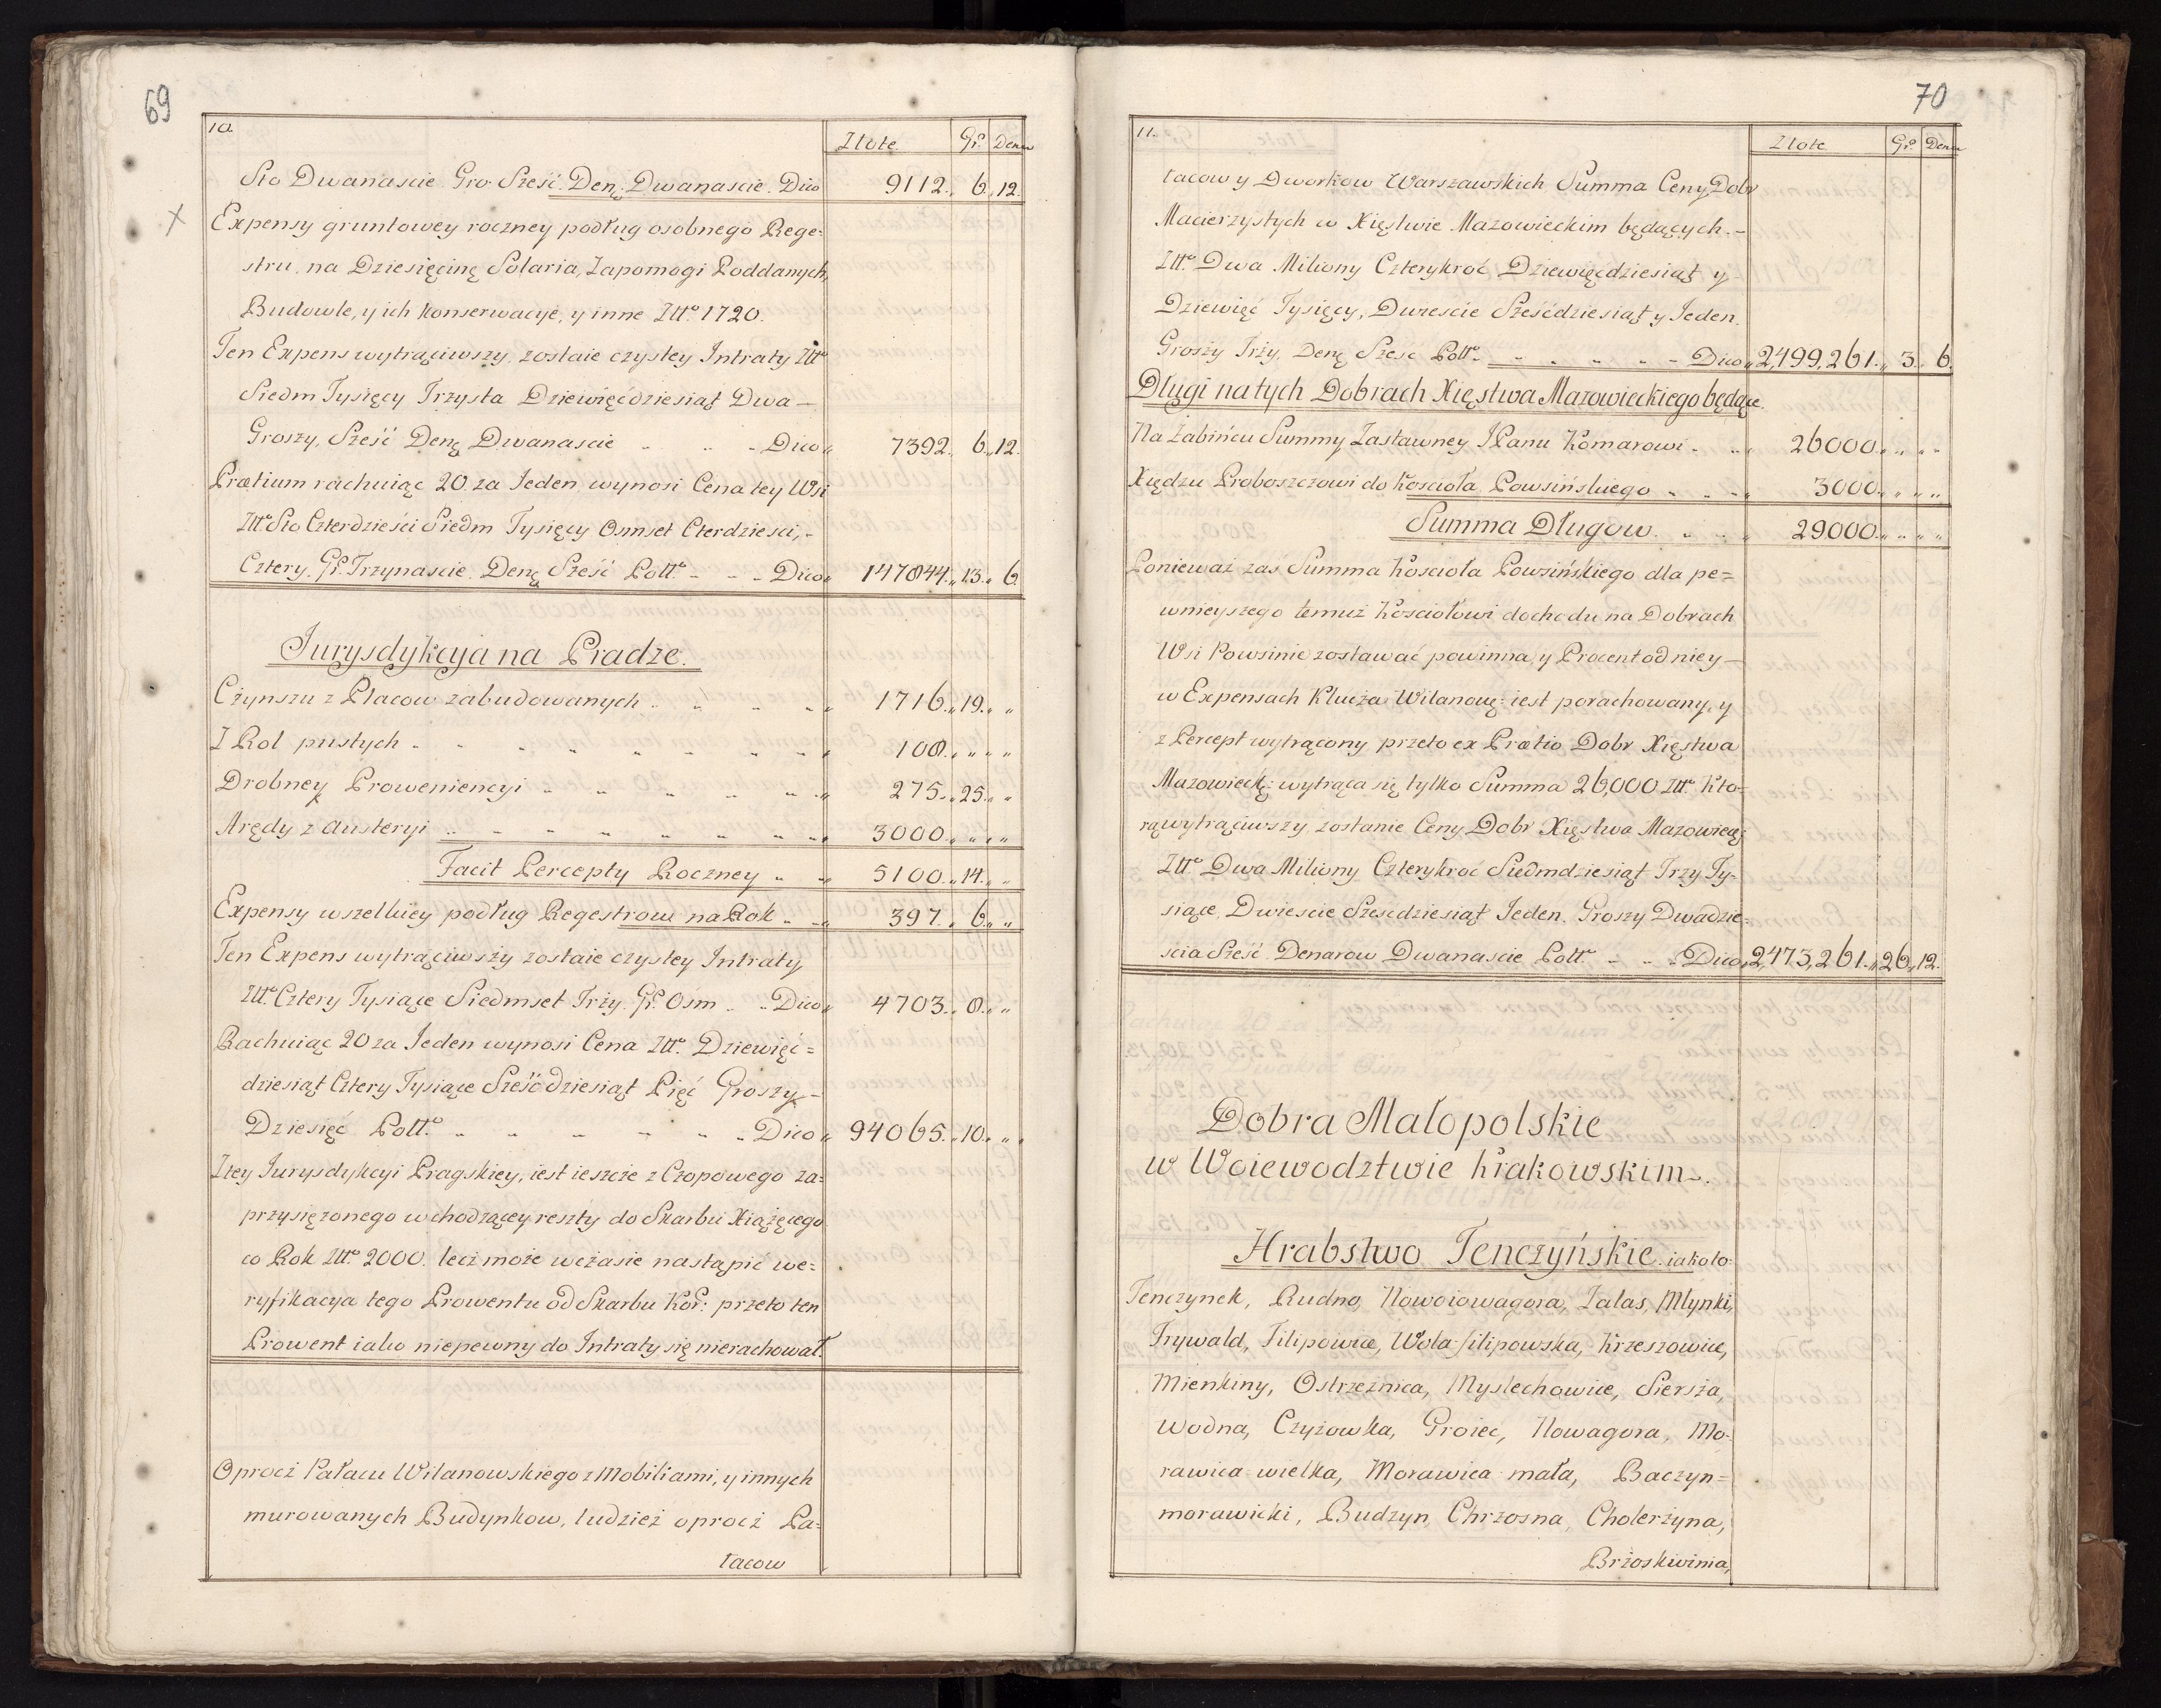 69
10.
Złote. Gr. Denar
Sto Dwanascie. Gro. Sześć. Denę. Dwanascie. Dico 9112. 6. 12.
Expensy gruntowey roczney podług osobnego Rege=
stru, na Dziesięcinę Solaria, Zapomogi Poddanych,
Budowle, y ich konserwacye, y inne Złłº 1720.
Ten Expens wytrąciwszy, zostaie czystey Intraty Złłº
Siedm Tysięcy Trzysta Dziewięćdziesiąt Dwa —
Groszy, Sześć Denę Dwanascie " " " Dico " 7392. 6. 12.
Prætium rachuiąc 20 za Jeden, wynosi Cena tey Wsi
Złłº Sto Czterdzieści Siedm Tysięcy Osmset Cterdziesci, -
Cztery. Gr. Trzynascie. Denę Sześć Poll. - - - Dico " 147844. " 13. " 6
Jurysdykcyia na Pradze.
Czynszu z Placow zabudowanych " " " " 1716. " 19. " "
Z Rol pustych " " " " " " " " 108. " " " "
Drobney Proweniencyi " " " " " " 275. " 25. " "
Arędy z Austeryi " " " " " " " " 3000. " " " "
Facit Percepty Roczney " " 5100. " 14. " "
Expensy wszelkiey podług Regestrow na Rok " " 397. " 6. " "
Ten Expens wytrąciwszy zostaie czystey Intraty,
Złłº Cztery Tysiące Siedmset Trzy. Gr. Osm " " Dico " 4703. " 8. " "
Rachuiąc 20 za Jeden wynosi Cena Złłº. Dziewięć=
dziesiąt Cztery Tysiące Sześćdziesiąt Pięć Groszy -
Dziesięć Poll. " " " " " " Dico " 94065. " 10. " "
Z tey Jurysdykcyi Pragskiey, iest ieszcze z Czopowego za=
przysiężonego wchodzącey reszty do Skarbu Xiążęcego
co Rok Złłº 2000. lecz może wczasie nastąpić we=
ryfikacya tego Prowentu od Skarbu Kor: przeto ten
Prowent iako niepewny do Intraty się nierachował.
Oprocz Pałacu Wilanowskiego z Mobiliami, y innych
murowanych Budynkow, tudzież oprocz Pa=
łacow
70
11.
Złote. Gr. Denar
łacow y Dworkow Warszawskich Summa Ceny Dobr
Macierzystych w Xięstwie Mazowieckim będących. -
Złłº. Dwa Miliony Czterykroć Dziewięćdziesiąt y
Dziewięć Tysięcy, Dwieście Sześćdziesiąt y Jeden.
Groszy Trzy, Denę Szesc Poll. - " " " " - Dico " 2,499,261. " 3. " 6.
Długi na tych Dobrach Xięstwa Mazowieckiego będące.
Na Żabińcu Summy Zastawney JPanu Komarowi " " " 26000. " " " "
Xiędzu Proboszczowi do Kościoła Powsińskiego " " " 3000. " " " "
Summa Długow. " " " 29000. " " " "
Ponieważ zaś Summa Kościoła Powsińskiego dla pe=
wnieyszego temuż Kościołowi dochodu na Dobrach
Wsi Powsinie zostawać powinna, y Procent od niey —
w Expensach Klucza Wilanowę: iest porachowany, y
z Percept wytrącony przeto ex Prætio Dobr Xięstwa
Mazowieckę: wytrąca się tylko Summa 26,000 Złłº Kto-
rą wytrąciwszy, zostanie Ceny Dobr Xięstwa Mazowieckę:
Złłº Dwa Miliony Czterykroć Siedmdziesiąt Trzy Ty=
siące, Dwieście Sześćdziesiąt Jeden. Groszy Dwadzie=
scia Sześć. Denarow Dwanascie Poll. - " " Dico " 2,473,261. " 26. " 12.
Dobra Małopolskie
w Woiewodztwie Krakowskim.
Hrabstwo Tenczyńskie. iako to:
Tenczynek, Rudno, Nowoiowagora, Zalas, Mlynki,
Frywald, Filipowice, Wola filipowska, Krzeszowice,
Mienkiny, Ostrzeżnica, Myslechowice, Siersza,
Wodna, Czyżowka, Groiec, Nowagora, Mo=
rawica wielka, Morawica mała, Baczyn=
morawicki, Budzyn, Chrzosna, Cholerzyna,
Brzoskwinia,